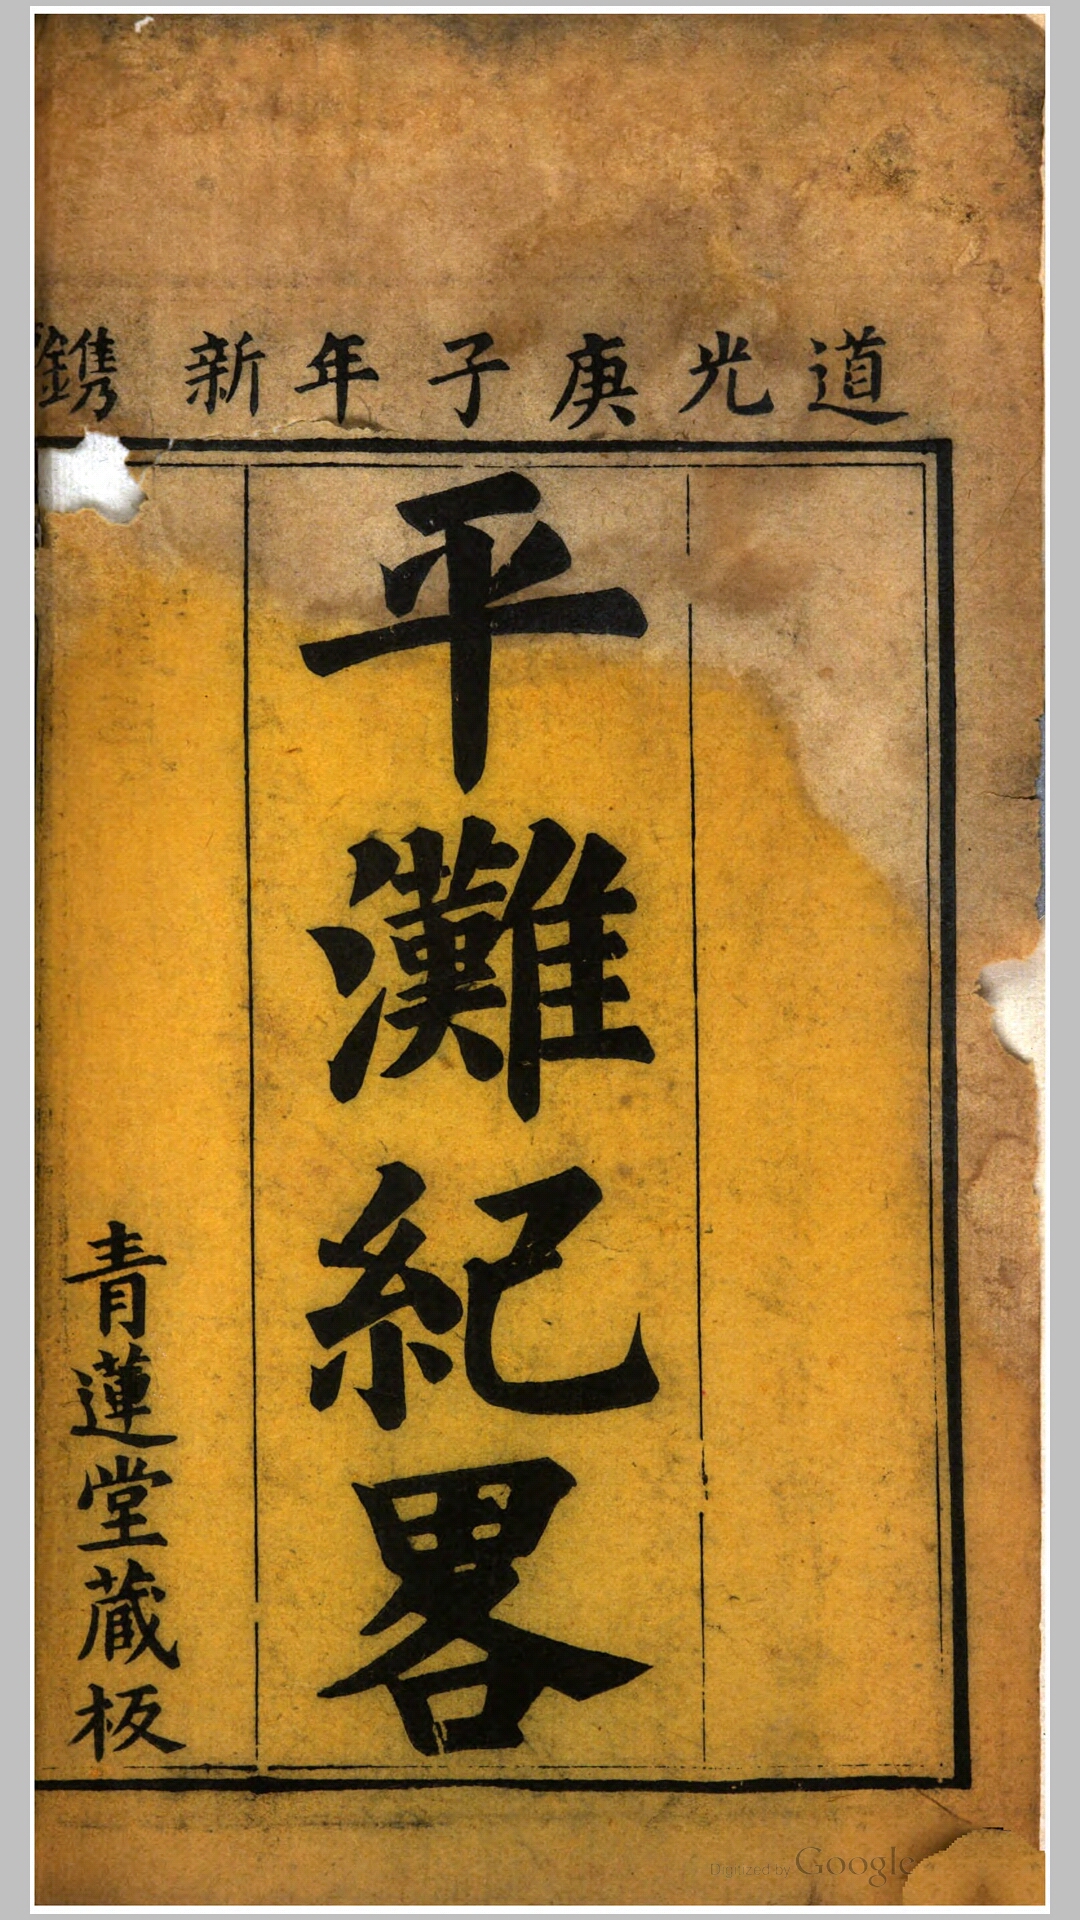 道光庚子年新鐫
平灘紀畧
青蓮堂藏板
Digitized by Google